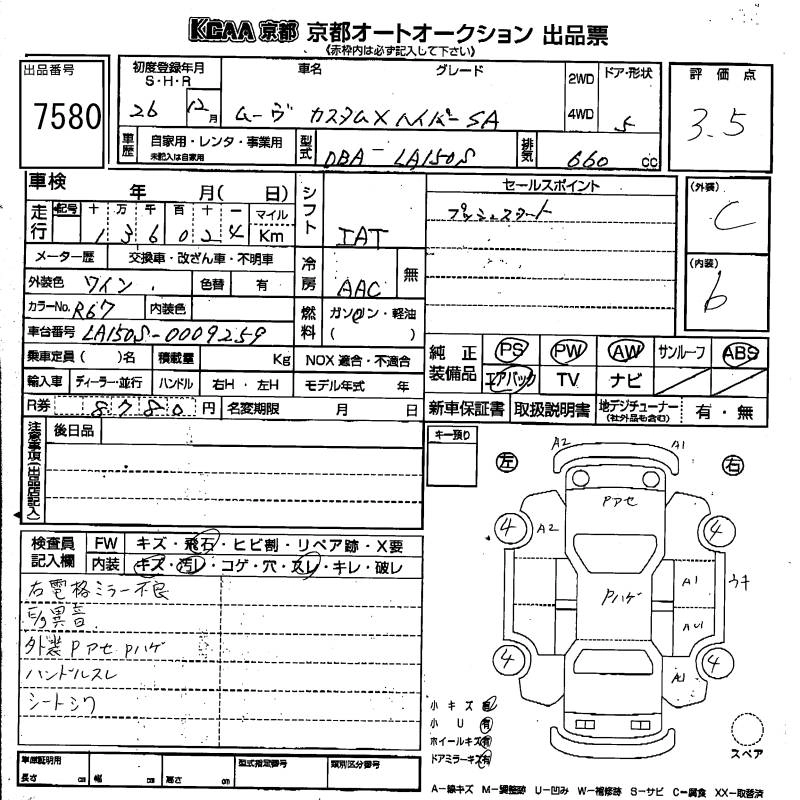 KCAA 京都 京都オートオークション 出品票
《赤枠内は必ず記入して下さい》
出品番号
7580
初度登録年月
S・H・R
26 12月
車名 グレード
ムーヴ カスタムXハイパーSA
2WD
4WD
ドア・形状
5
評価点
3.5
車歴
自家用・レンタ・事業用
未記入は自家用
型式
DBA-LA150S
排気
660 cc
車検 年 月( 日)
走行
記号 十 万 千 百 十 一 マイル
1 3 6 0 2 4 Km
シフト
IAT
セールスポイント
プッシュスタート
(外装)
C
(内装)
b
メーター歴 交換車・改ざん車・不明車
外装色 ワイン 色替 有
冷房
AAC 無
カラーNo. R67 内装色
燃料
ガソリン・軽油
( )
車台番号 LA150S-0009259
乗車定員( )名 積載量 Kg NOX 適合・不適合
輸入車 ディーラー・並行 ハンドル 右H・左H モデル年式 年
R券 8780 円 名変期限 月 日
純正装備品
PS PW AW サンルーフ ABS
エアバック TV ナビ
新車保証書 取扱説明書 地デジチューナー (社外品も含む) 有・無
注意事項(出品店記入)
後日品
キー預り
検査員記入欄
FW キズ・飛石・ヒビ割・リペア跡・X要
内装 キズ・汚レ・コゲ・穴・スレ・キレ・破レ
右電格ミラー不良
E/g異音
外装Pアセ Pハゲ
ハンドルスレ
シートシワ
左 A2 A1 右
Pアセ
4 A2 4
Pハゲ A1 ウキ
AU1
4 A1 4
小キズ 有
小U 有
ホイールキズ 有
ドアミラーキズ 有
スペア
車庫証明用
長さ cm 幅 cm 高さ cm
型式指定番号 類別区分番号
A-線キズ M-調整跡 U-凹み W-補修跡 S-サビ C-腐食 XX-取替済